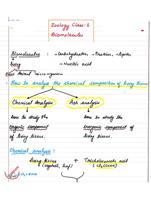 Zoology Class: 6
Biomolecules
Biomolecules → Carbohydrates, Protein, Lipids
living → Nucleic acid
Plant Animal Micro-organism
How to analyse the chemical composition of living tissue
Chemical Analysis Ash analysis
how to study the how to study the
organic component inorganic component
of living tissue. of living tissue.
Chemical analysis:
living tissue + Trichloroacetic acid
(vegetable, leaf) (Cl₃CCOOH)